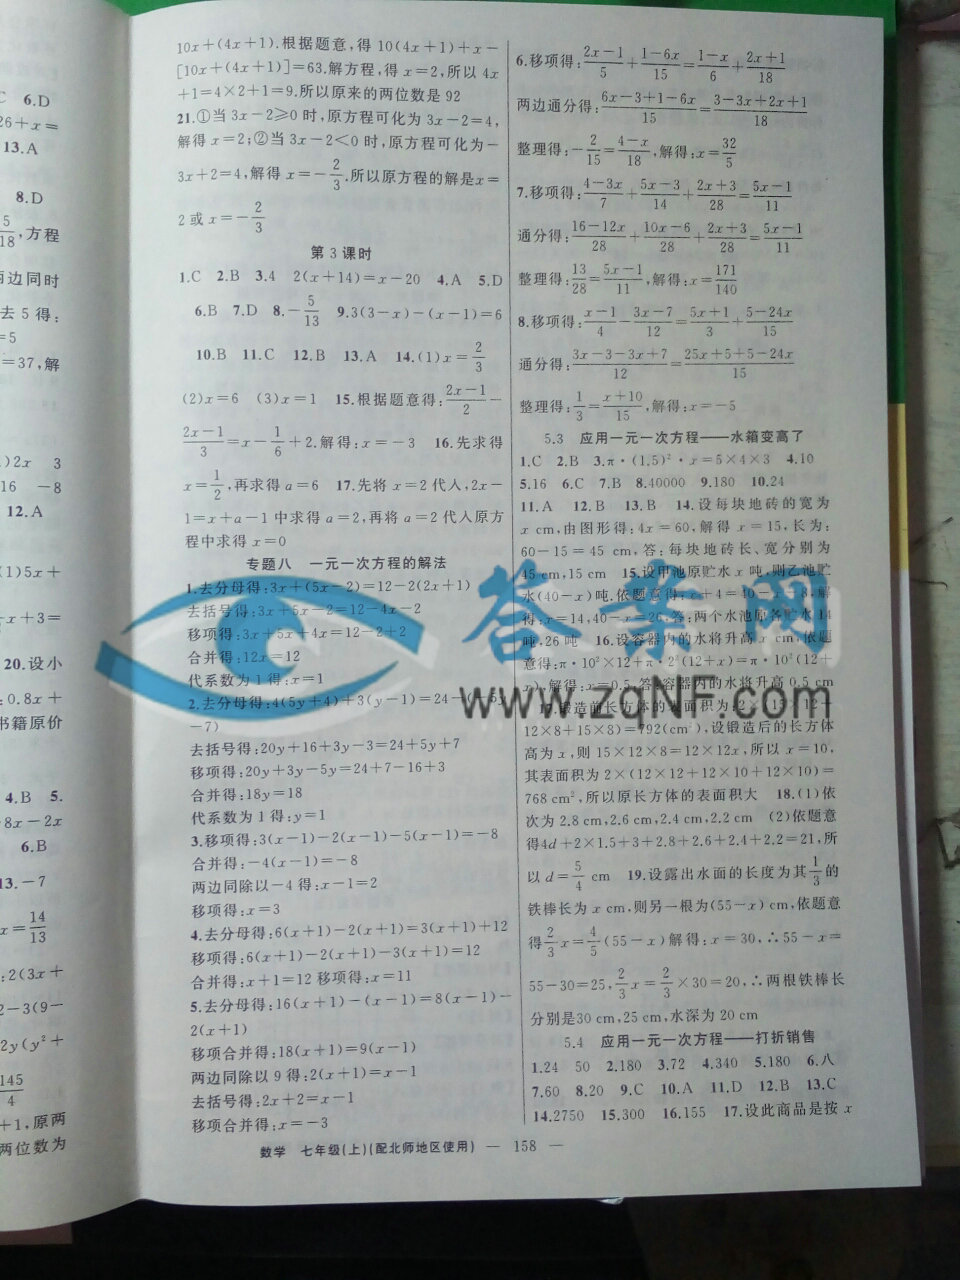 C 6.D
26+x=
13.A
8.D
5/18,方程
两边同时
去 5 得:
=5
=37,解
)2x 3
16 -8
12.A
(1)5x+
x+3=
20.设小
0.8x+
书籍原价
4.B 5.
8x-2x
6.B
13.-7
x=14/13
:2(3x+
2-3(9-
2y(y²+
145/4
+1,原两
两位数为
10x+(4x+1).根据题意,得 10(4x+1)+x-
[10x+(4x+1)]=63.解方程,得 x=2,所以 4x
+1=4×2+1=9.所以原来的两位数是 92
21.①当 3x-2≥0 时,原方程可化为 3x-2=4,
解得 x=2;②当 3x-2<0 时,原方程可化为-
3x+2=4,解得 x=-2/3.所以原方程的解是x=
2 或 x=-2/3
第 3 课时
1.C 2.B 3.4 2(x+14)=x-20 4.A 5.D
6.B 7.D 8.-5/13 9.3(3-x)-(x-1)=6
10.B 11.C 12.B 13.A 14.(1)x=2/3
(2)x=6 (3)x=1 15.根据题意得:(2x-1)/2-
(2x-1)/3=x-1/6+2.解得:x=-3 16.先求得
x=1/2,再求得 a=6 17.先将 x=2 代人,2x-
1=x+a-1 中求得 a=2,再将 a=2 代人原方
程中求得 x=0
专题八 一元一次方程的解法
1.去分母得:3x+(5x-2)=12-2(2x+1)
去括号得:3x+5x-2=12-4x-2
移项得:3x+5x+4x=12-2+2
合并得:12x=12
代系数为 1 得:x=1
2.去分母得:4(5y+4)+3(y-1)=24-(-5y
-7)
去括号得:20y+16+3y-3=24+5y+7
移项得:20y+3y-5y=24+7-16+3
合并得:18y=18
代系数为 1 得:y=1
3.移项得:3(x-1)-2(x-1)-5(x-1)=-8
合并得:-4(x-1)=-8
两边同除以-4 得:x-1=2
移项得:x=3
4.去分母得:6(x+1)-2(x+1)=3(x+1)+12
移项得:6(x+1)-2(x+1)-3(x+1)=12
合并得:x+1=12 移项得:x=11
5.去分母得:16(x+1)-(x-1)=8(x-1)-
2(x+1)
移项合并得:18(x+1)=9(x-1)
两边同除以 9 得:2(x+1)=x-1
去括号得:2x+2=x-1
移项合并得:x=-3
6.移项得:(2x-1)/5+(1-6x)/15=(1-x)/6+(2x+1)/18
两边通分得:(6x-3+1-6x)/15=(3-3x+2x+1)/18
整理得:-2/15=(4-x)/18,解得:x=32/5
7.移项得:(4-3x)/7+(5x-3)/14+(2x+3)/28=(5x-1)/11
通分得:(16-12x)/28+(10x-6)/28+(2x+3)/28=(5x-1)/11
整理得:13/28=(5x-1)/11,解得:x=171/140
8.移项得:(x-1)/4-(3x-7)/12=(5x+1)/3+(5-24x)/15
通分得:(3x-3-3x+7)/12=(25x+5+5-24x)/15
整理得:1/3=(x+10)/15,解得:x=-5
5.3 应用一元一次方程——水箱变高了
1.C 2.B 3.π·(1.5)²·x=5×4×3 4.10
5.16 6.C 7.B 8.40000 9.180 10.24
11.A 12.B 13.B 14.设每块地砖的宽为
x cm,由图形得:4x=60,解得 x=15,长为:
60-15=45 cm,答:每块地砖长、宽分别为
45 cm,15 cm 15.设甲池原贮水 x 吨,则乙池贮
水(40-x)吨.依题意得:x+4=40-x-8,解
得:x=14,40-x=26,答:两个水池原各贮水 14
吨,26 吨 16.设容器内的水将升高 x cm,依题
意得:π·10²×12+π·2²(12+x)=π·10²(12+
x) 解得:x=0.5,答:容器内的水将升高 0.5 cm
17.锻造前长方体的表面积为 2×(15×12+
12×8+15×8)=792(cm²),设锻造后的长方体
高为 x,则 15×12×8=12×12x,所以 x=10,
其表面积为 2×(12×12+12×10+12×10)=
768 cm²,所以原长方体的表面积大 18.(1)依
次为 2.8 cm,2.6 cm,2.4 cm,2.2 cm (2)依题意
得4d+2×1.5+3+2.8+2.6+2.4+2.2=21,所
以 d=5/4 cm 19.设露出水面的长度为其1/3的
铁棒长为 x cm,则另一根为(55-x) cm,依题意
得2/3x=4/5(55-x)解得:x=30,∴55-x=
55-30=25,2/3x=2/3×30=20,∴两根铁棒长
分别是30 cm,25 cm,水深为 20 cm
5.4 应用一元一次方程——打折销售
1.24 50 2.180 3.72 4.340 5.180 6.八
7.60 8.20 9.C 10.A 11.D 12.B 13.C
14.2750 15.300 16.155 17.设此商品是按 x
数学 七年级(上)(配北师地区使用) — 158 —
答案网
www.zqNF.com